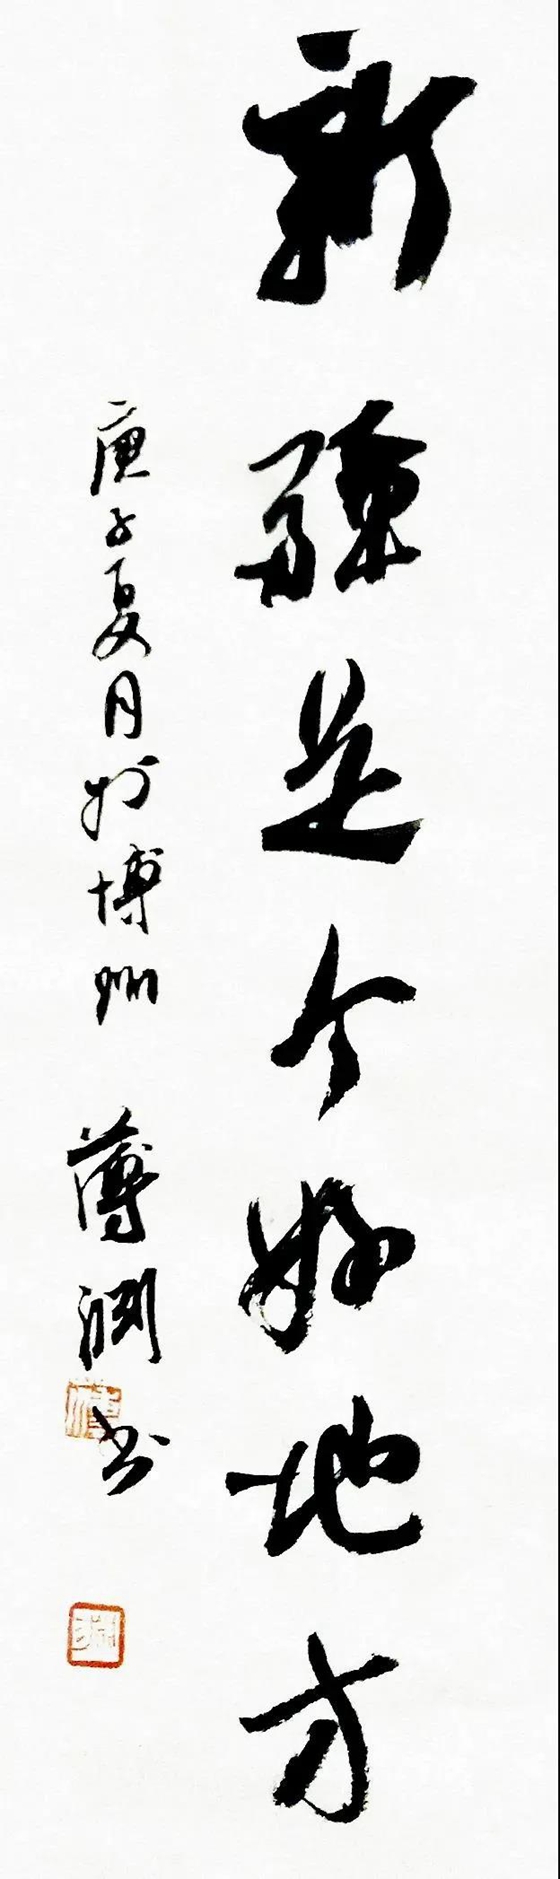 新疆是个好地方
庚子夏月於博州 薄渊书